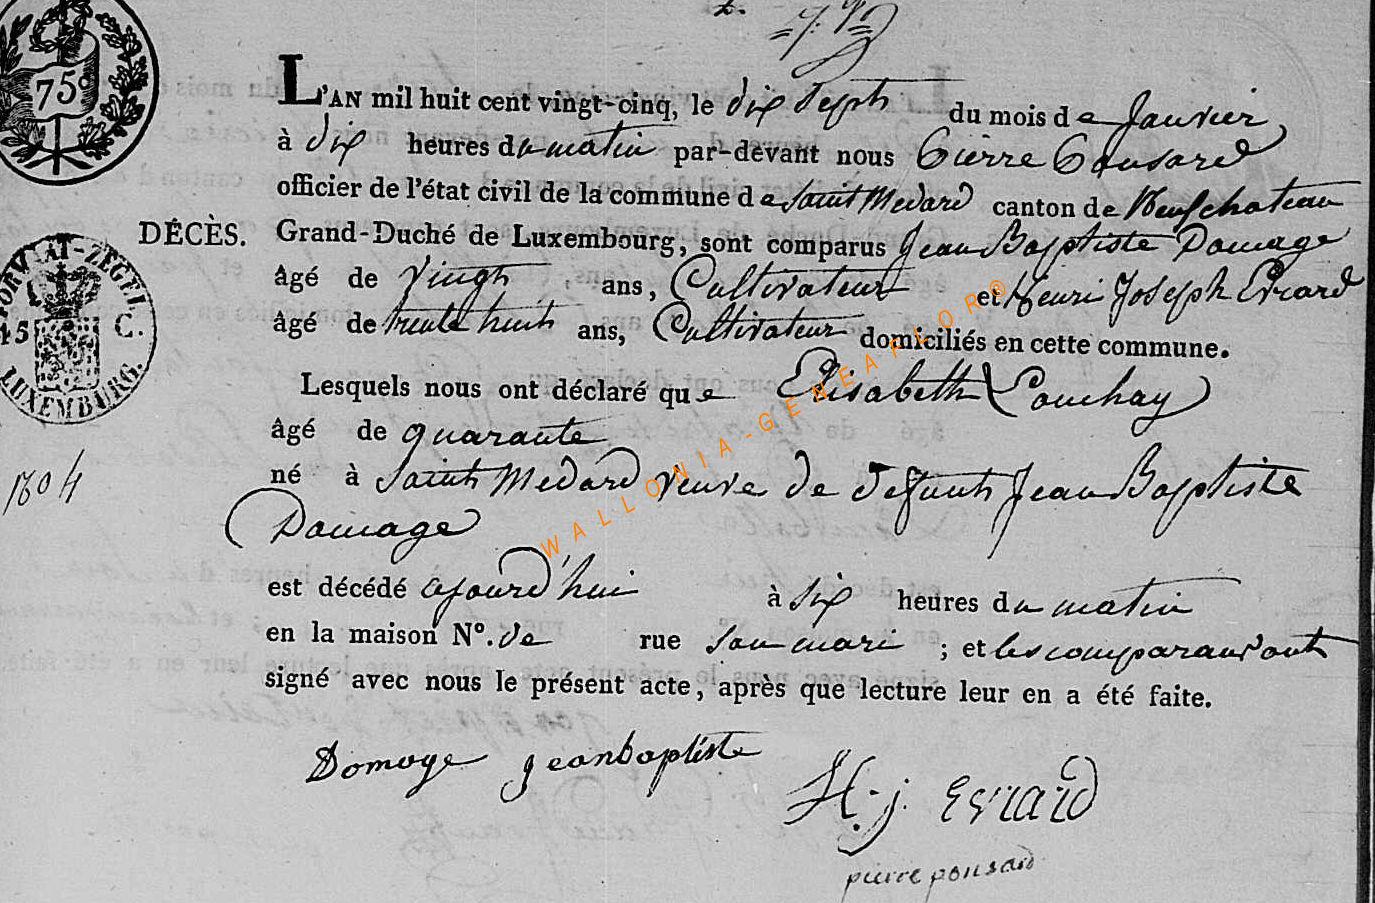 75c
L'AN mil huit cent vingt-cinq, le dix sept du mois de Janvier
à dix heures du matin par-devant nous Pierre Ponsard
officier de l'état civil de la commune de Saint Medard canton de Neufchateau
DÉCÈS. Grand-Duché de Luxembourg, sont comparus Jean Baptiste Domage
âgé de vingt ans, Cultivateur et Henri Joseph Evrard
âgé de trente huit ans, Cultivateur domiciliés en cette commune.
Lesquels nous ont déclaré que Elisabeth
âgé de quarante
né à Saint Medard veuve de defunt Jean Baptiste
Domage
est décédé ajourd'hui à six heures du matin
en la maison N°. de rue son mari ; et les comparans ont
signé avec nous le présent acte, après que lecture leur en a été faite.
Domage jeanbaptiste
H. j. Evrard
pierre ponsard
45 C.
LUXEMBURG.
WALLONIA-GENEARLOR©